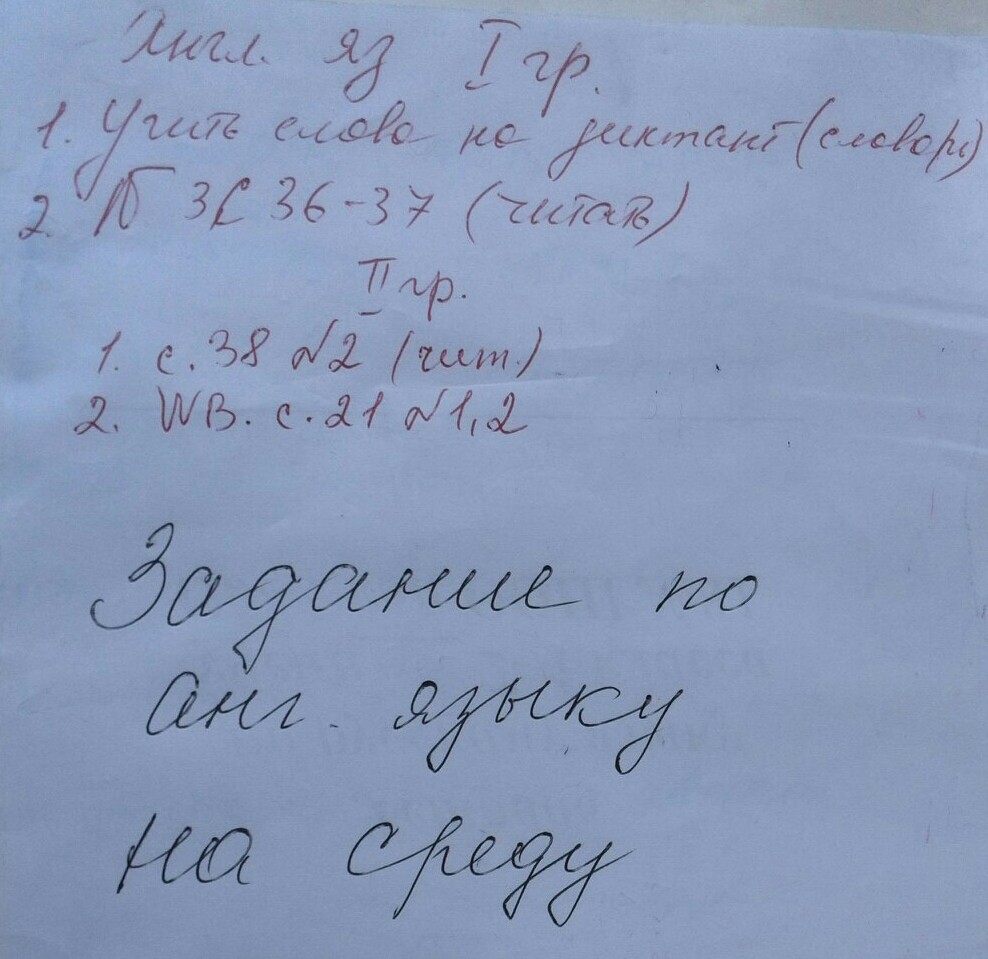 Англ. яз I гр.
1. Учить слова на диктант (словарь)
2. 36-37 (читать)
II гр.
1. с. 38 №2 (чит.)
2. WB. с. 21 №1,2
Задание по
анг. языку
на среду